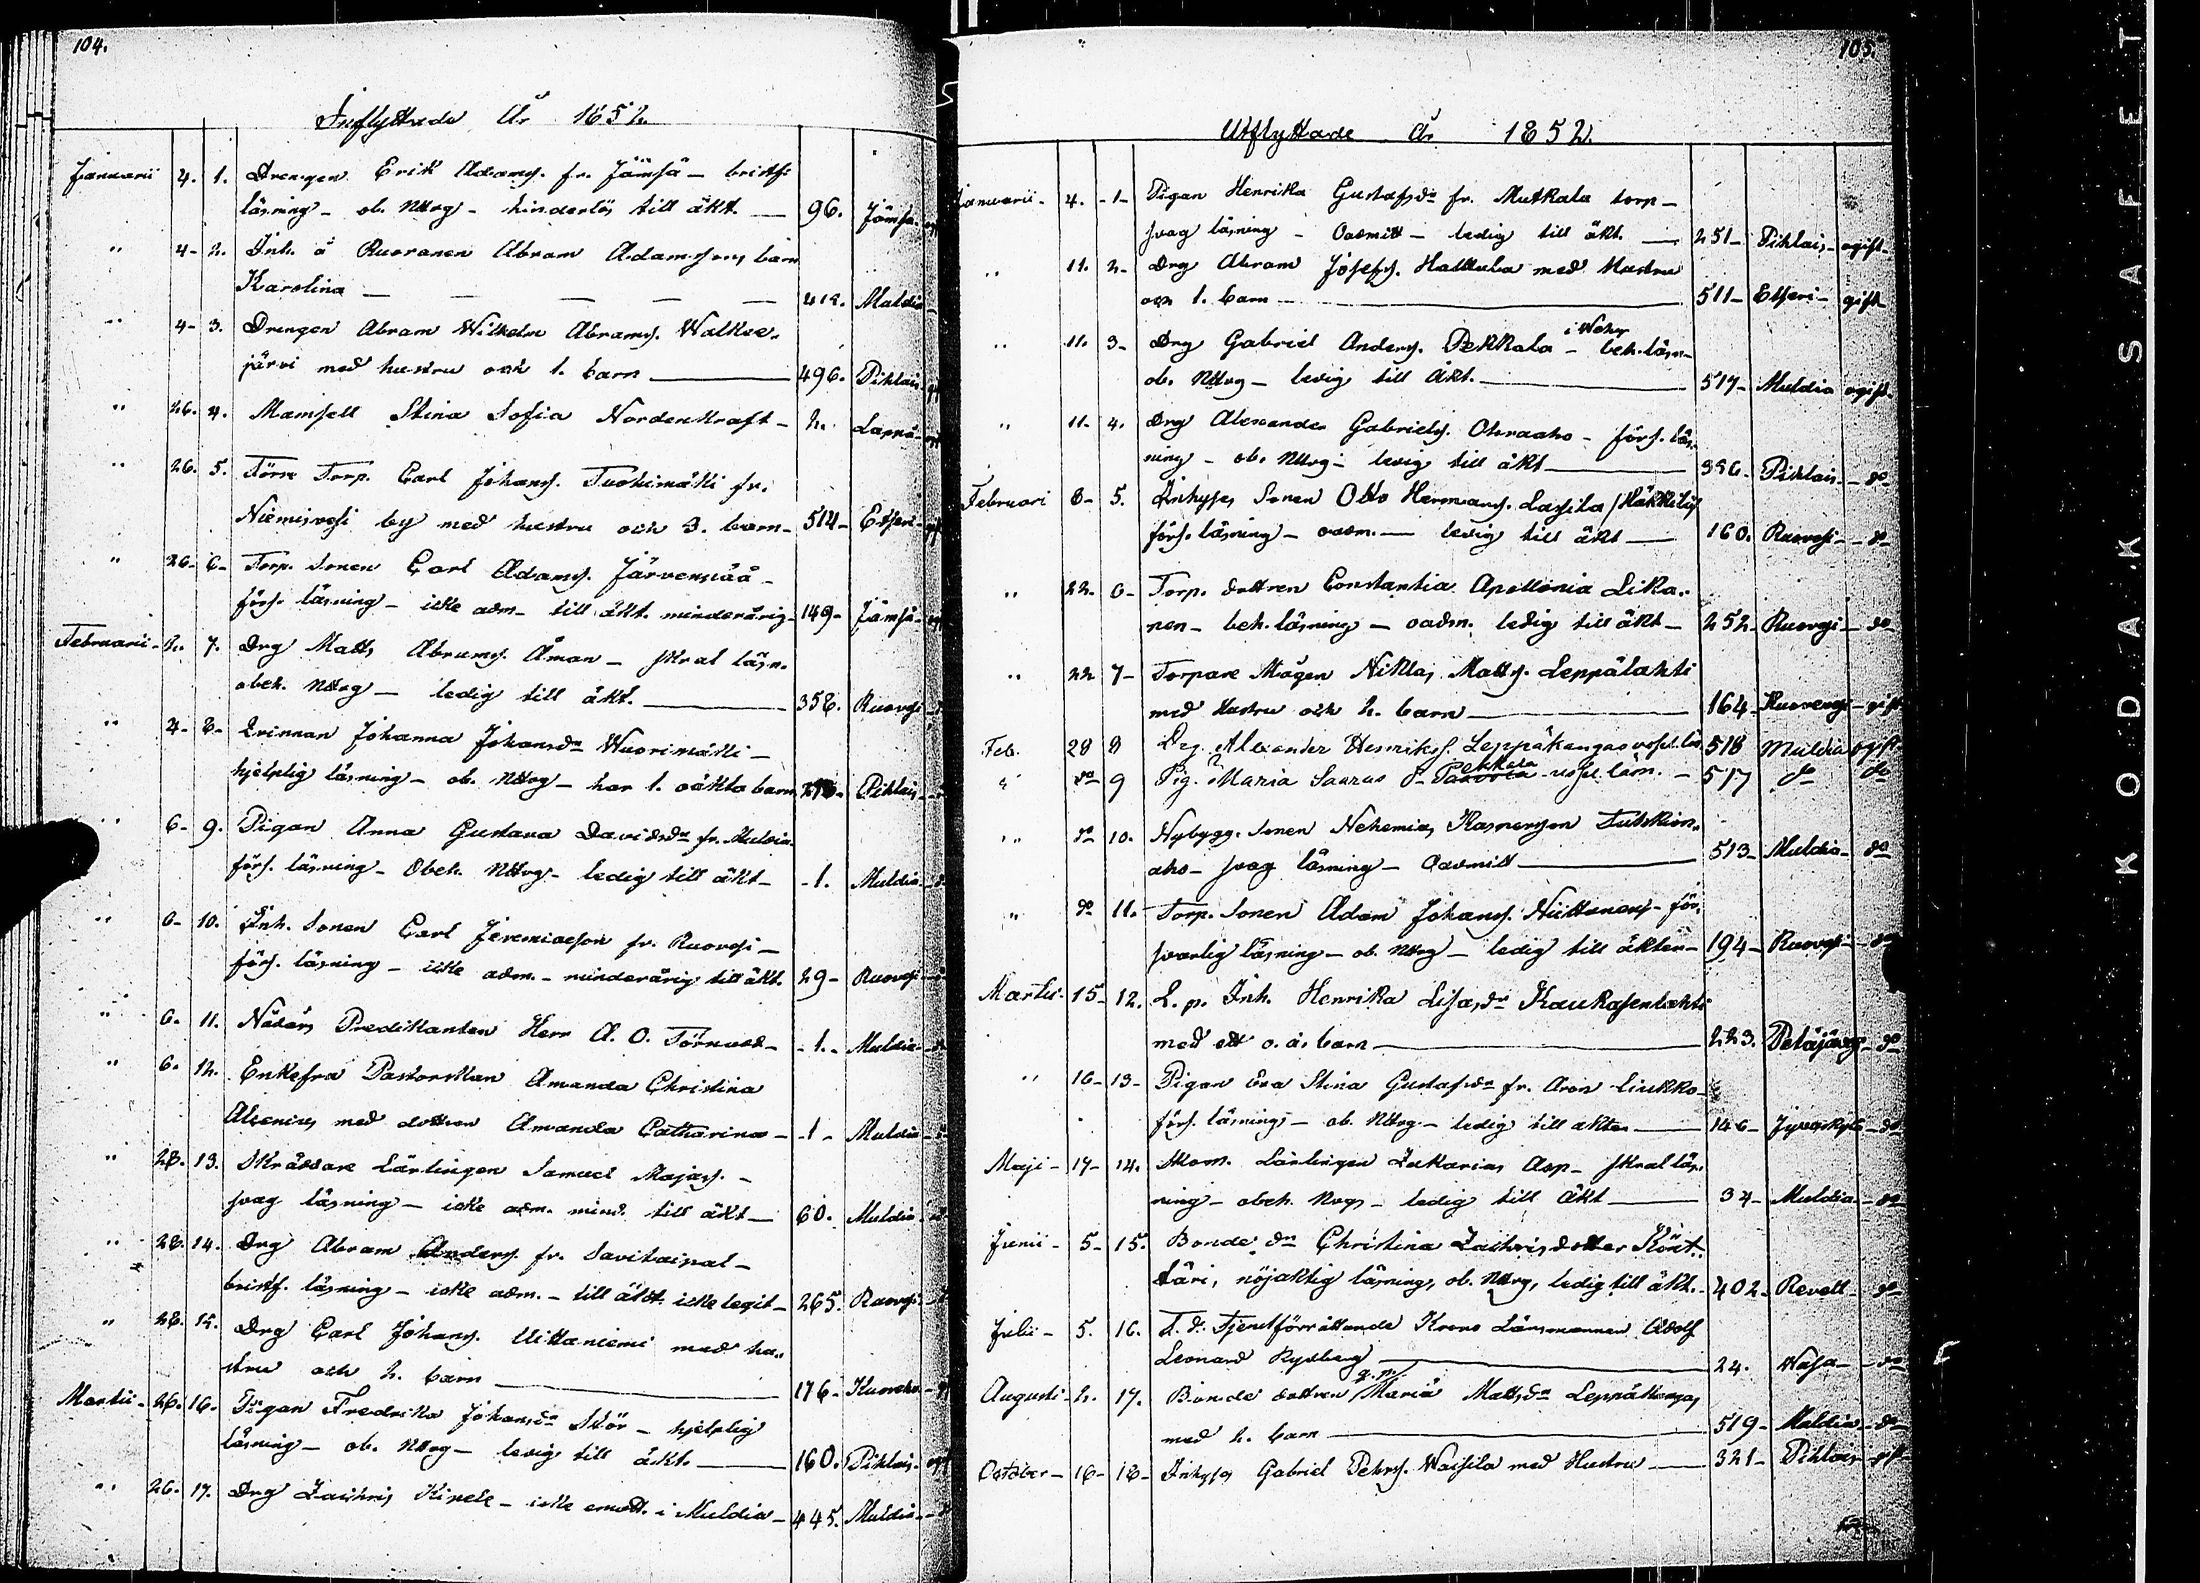 104.
Inflyttade År 1852.
Januarii 4. 1. Drengen Erik Adams. fr. Jämsä - bristf.
läsning - ob. Nttvg - hinderlös till äkt. — 96. Jämsä
" 4- 2. Inh. å Ruoranen Abram Adamssons barn
Karolina — — — — 418. Muldia
" 4- 3. Drengen Abram Wilhelm Abrams. Walkee-
järvi med hustru och 1. barn — 496. Pihlais
" 26. 4. Mamsell Stina Sofia Nordenstraft - 2. Lappä-
" 26. 5. Förre Torp. Carl Johans. Tuohimäki fr.
Niemisvesi by med hustru och 3. barn - 514 - Etseri-
" 26- 6- Torp. Sonen Carl Adams. Järvenpää -
förs. läsning - icke adm. - till äkt. minderårig - 149 - Jämsä-
Februarii - 2. 7. Drg Matts Abrams. Åman - skral läsn.
obeh. Nttvg — ledig till äkt. — 358. Ruovesi
" 4- 8- Qvinnan Johanna Johansdr Wuorimäki -
hjelplig läsning - ob. Nttvg - har 1. oäkta barn Pihlais-
" 6- 9. Pigan Anna Gustava Davidsdr fr. Muldia
förs. läsning - Obeh. Nttvg - ledig till äkt - - 1. Muldia-
" 6- 10. Inh. Sonen Carl Jeremiaeson fr. Ruovesi -
förs. läsning - icke adm. - minderårig till äkt. 29- Ruovesi
" 6. 11. Nådårs Predikanten Herr A. O. Törnudd - - 1. - Muldia-
" 6. 12. Enkefru Pastorskan Amanda Christina
Alcenius med dottren Amanda Catharina - - 1 - Muldia
" 28. 13. Skräddare Lärlingen Samuel Majass. -
svag läsning - icke adm. mind. till äkt - 60. Muldia
" 28. 14. Drg Abram Anders. fr. Savitaipal -
bristf. läsning - icke adm. - till äkt. icke legit - 265. Ruovesi
" 28. 15. Drg Carl Johans. Uittaniemi med hu-
stru och 2. barn — 176- Kuorehv.
Martii - 26. 16. Pigan Fredrika Johansdr Stör - hjelplig
läsning - ob. Nttvg - ledig till äkt. — 160. Pihlais. ogift
" 26. 17. Drg Zachris Kipele - icke emott. i Muldia - 445. Muldia-
105.
Utflyttade År 1852.
Januarii - 4. - 1- Pigan Henrika Gustafsdr fr. Mutkala torp -
svag läsning - Oadmitt - ledig till äkt. — 251- Pihlais - ogift-
" 11. 2- Drg Abram Josefs. Hallluba med Hustru
och 1. barn — 511- Etseri- gift
i Wehm
" 11. 3- Drg Gabriel Anders. Pekkala - beh. läsn-
ob. Nttvg - ledig till Äkt. — 517- Muldia ogift-
" 11- 4. Drg Alexander Gabriels. Ohraaho - förs. läs-
ning - ob. Nttvg - ledig till äkt — 386. Pihlais - do
Februari 8- 5. Inhyses Sonen Otto Hermans. Lassila /Häkkilä/
förs. läsning - oadm. — ledig till äkt — 160. Ruovesi- - do
" 22- 6- Torp. dottren Constantia Apollonia Lika-
nen - beh. läsning - oadm. ledig till äkt - 252- Ruovesi - do
" 22 7- Torpare Mågen Niklas Matts. Leppälahti
med Hustru och 2. barn — 164- Kuorevesi - gift
Feb. 28 8 Drg. Alexander Henrikss. Leppäkangas 518 Muldia ogift
" do 9 Pig. Maria Saurus d- ekkala läsn. - 517 do do
" do 10. Nybygg. Sonen Nehemias Kaspersson Tutkion-
aho - svag läsning - Oadmitt — 513- Muldia- do
" do 11. Torp. Sonen Adam Johans. Niittunen - för-
svarlig läsning - ob. Nttvg - ledig till äkten - 194 - Ruovesi- do
Martii - 15- 12. L. p. Inh. Henrika Lisasdr Kaukasenlahti
med ett o. ä. barn — 223. Petäjäves - do
" 16- 13- Pigan Eva Stina Gustafsdr fr. Aron Liukko-
förs. läsning - ob. Nttvg - ledig till äkten — 146- Jyväskylä - do
Maji - 17- 14. Skom. Lärlingen Zakarias Asp - skral läs-
ning - obeh. Nvgs - ledig till Äkt — 34- Muldia- do
Junii - 5- 15. Bonde dr Christina Zachrisdotter Kört-
täri, nöjaktig läsning, ob. Nttvg, ledig till äkt. - 402- Revell - do
Julii - 5. 16. T. d. Tjenstförrättande Krono Länsmannen Adolf
Leonard Rydberg — 24. Wasa - do
Augusti - 2. 17. Bonde dottren q.p. Maria Mattsdr Leppäkangas
med 2. barn — 519- Muldia - do
October - 16- 18- Inhyses Gabriel Pehrs. Waissila med Hustru — 321- Pihlais gift
KODAK SAFET